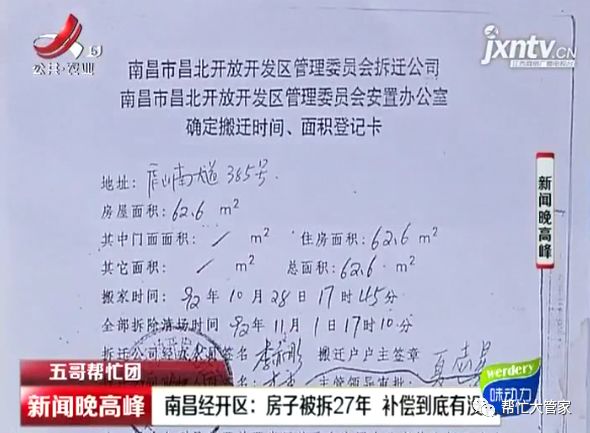 公共·农业
jxntv.CN
江西网络广播电视台
南昌市昌北开放开发区管理委员会拆迁公司
南昌市昌北开放开发区管理委员会安置办公室
确定搬迁时间、面积登记卡
地址：庐山南大道385号
房屋面积：62.6 m²
其中门面面积：/ m² 住房面积：62.6 m²
其它面积：/ m² 总面积：62.6 m²
搬家时间：92年10月28日17时45分
全部拆除清场时间92年11月1日17时10分
拆迁公司经办人员签名 搬迁户户主签章
主管领导审批：
新闻晚高峰
五哥帮忙团
新闻晚高峰
南昌经开区：房子被拆27年 补偿到底有没
werdery
味动力
帮忙大管家